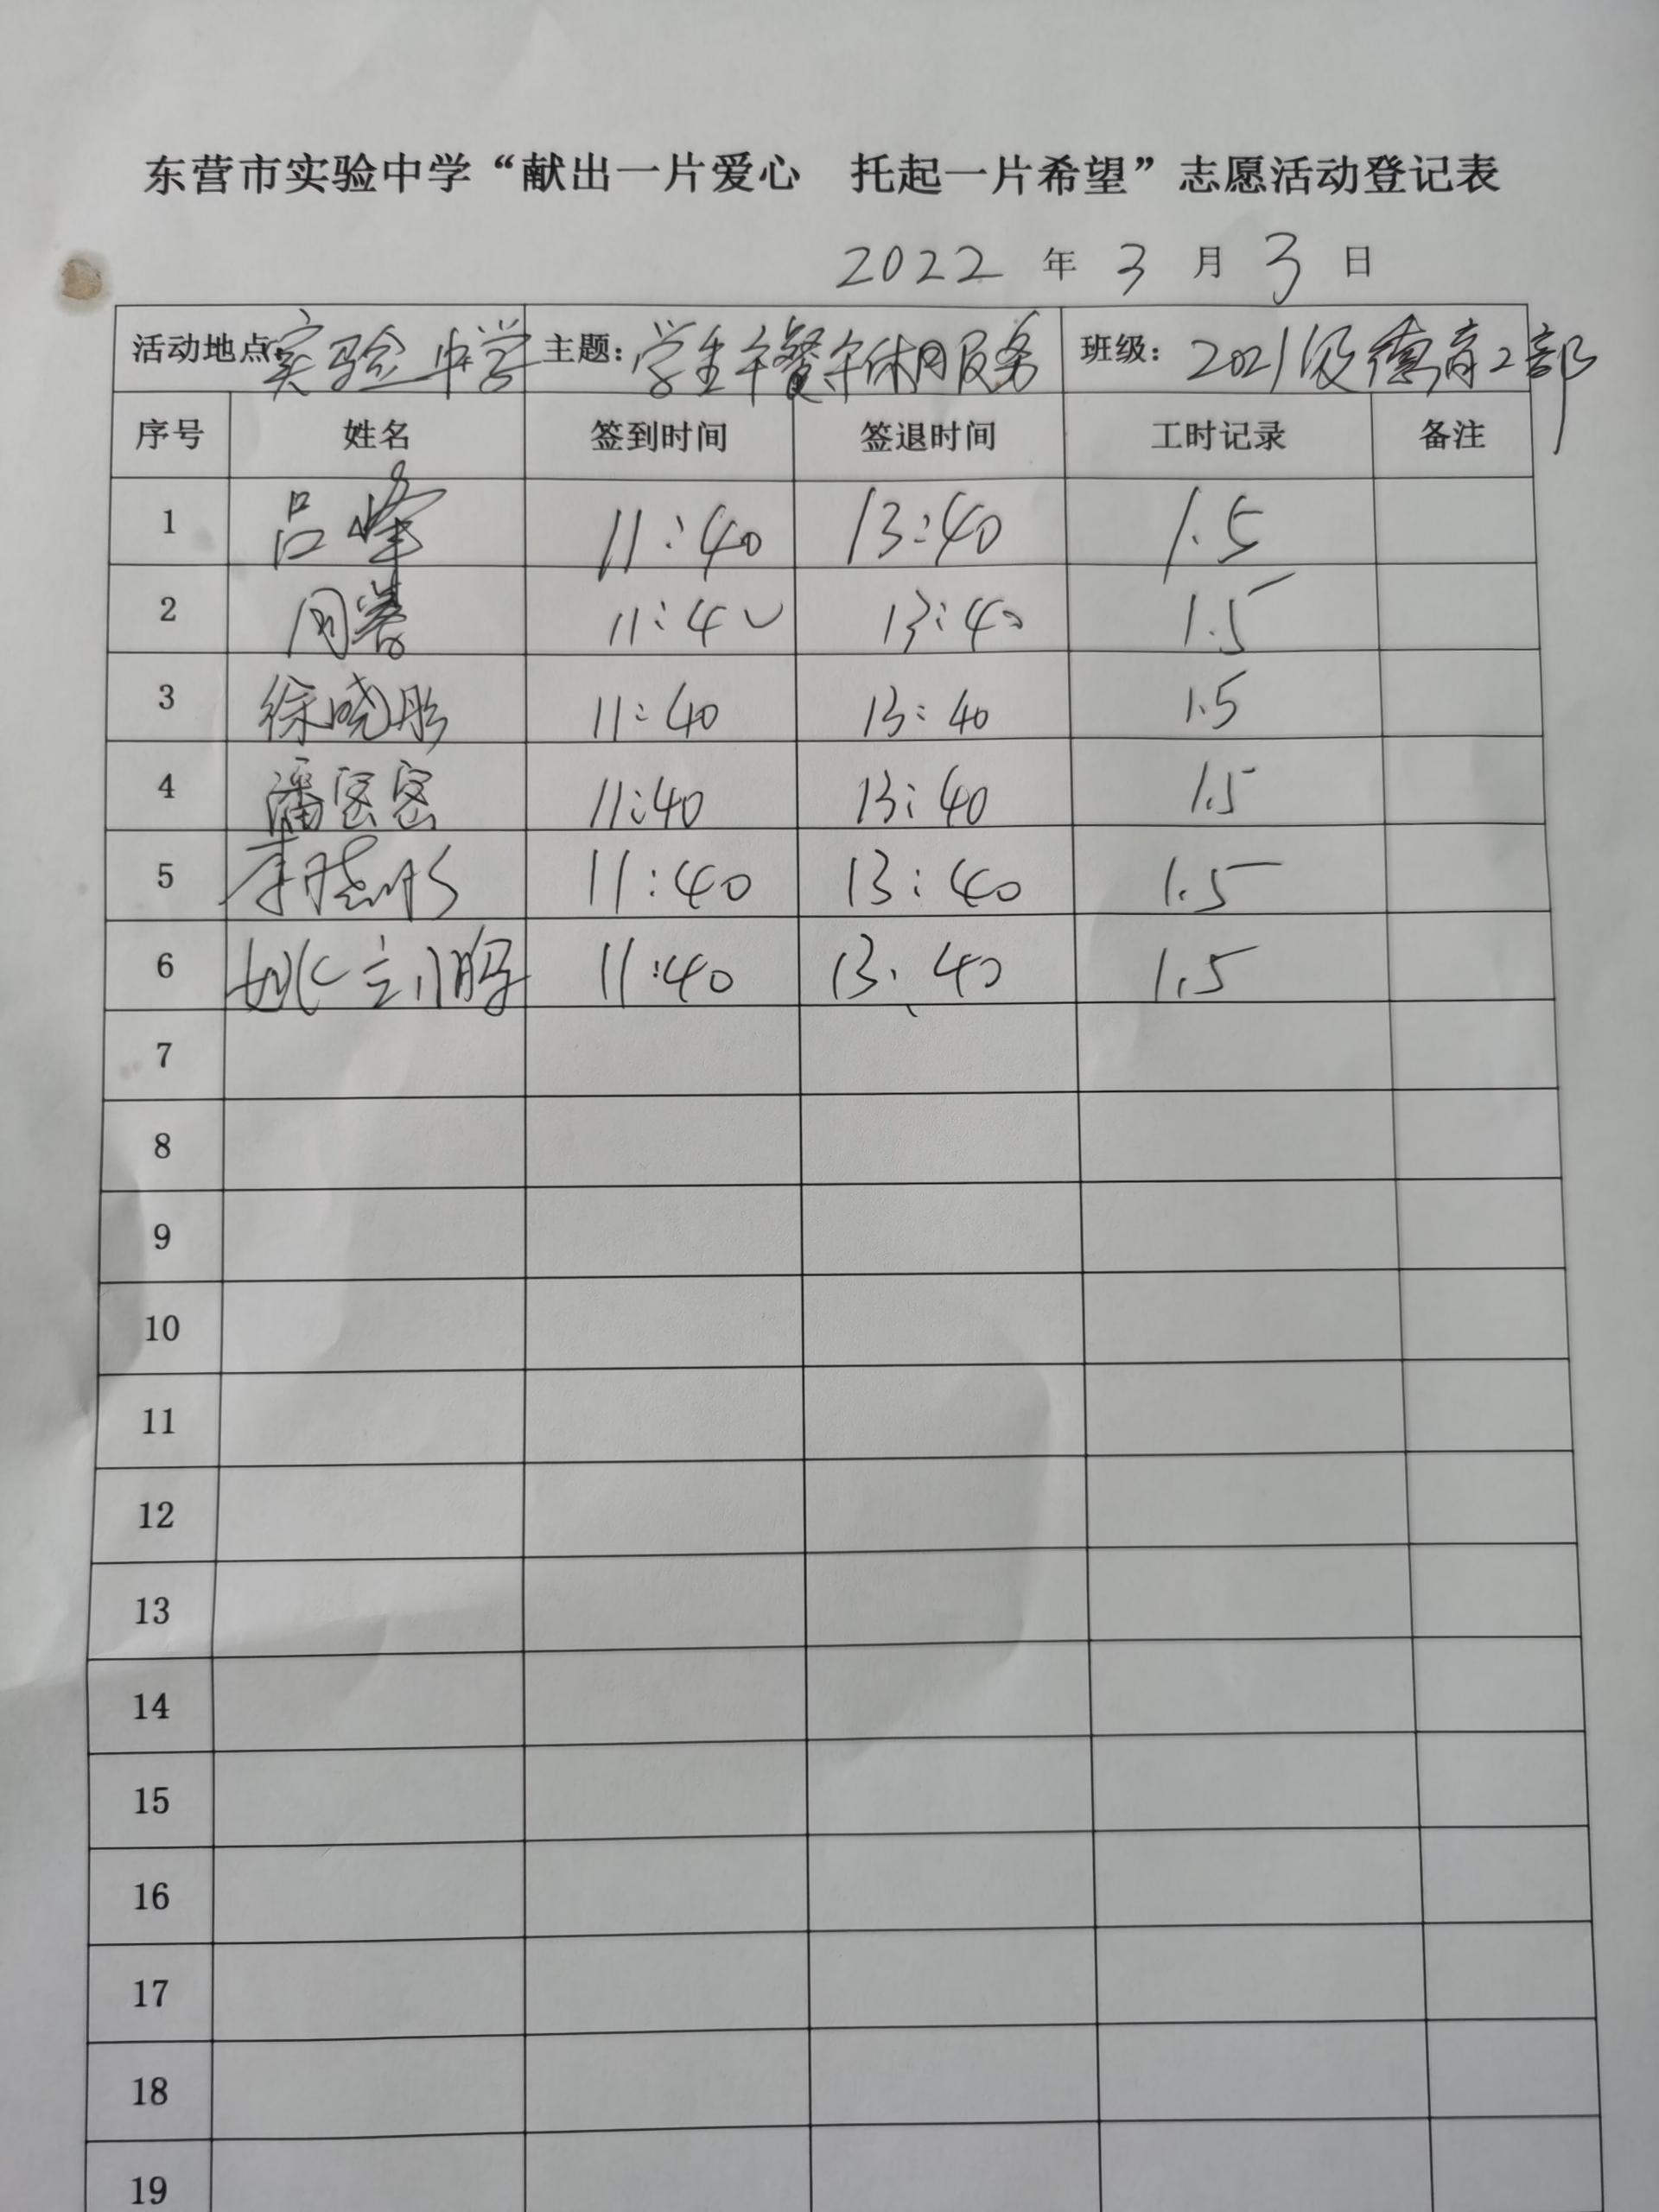 东营市实验中学“献出一片爱心 托起一片希望”志愿活动登记表
2022 年 3 月 3 日
活动地点: 实验中学 主题: 学生午餐午休服务 班级: 2021级德育2部
序号 姓名 签到时间 签退时间 工时记录 备注
1 吕峰 11:40 13:40 1.5
2 周 11:40 13:40 1.5
3 徐晓彤 11:40 13:40 1.5
4 潘密密 11:40 13:40 1.5
5 李 11:40 13:40 1.5
6 姚 11:40 13:40 1.5
7
8
9
10
11
12
13
14
15
16
17
18
19